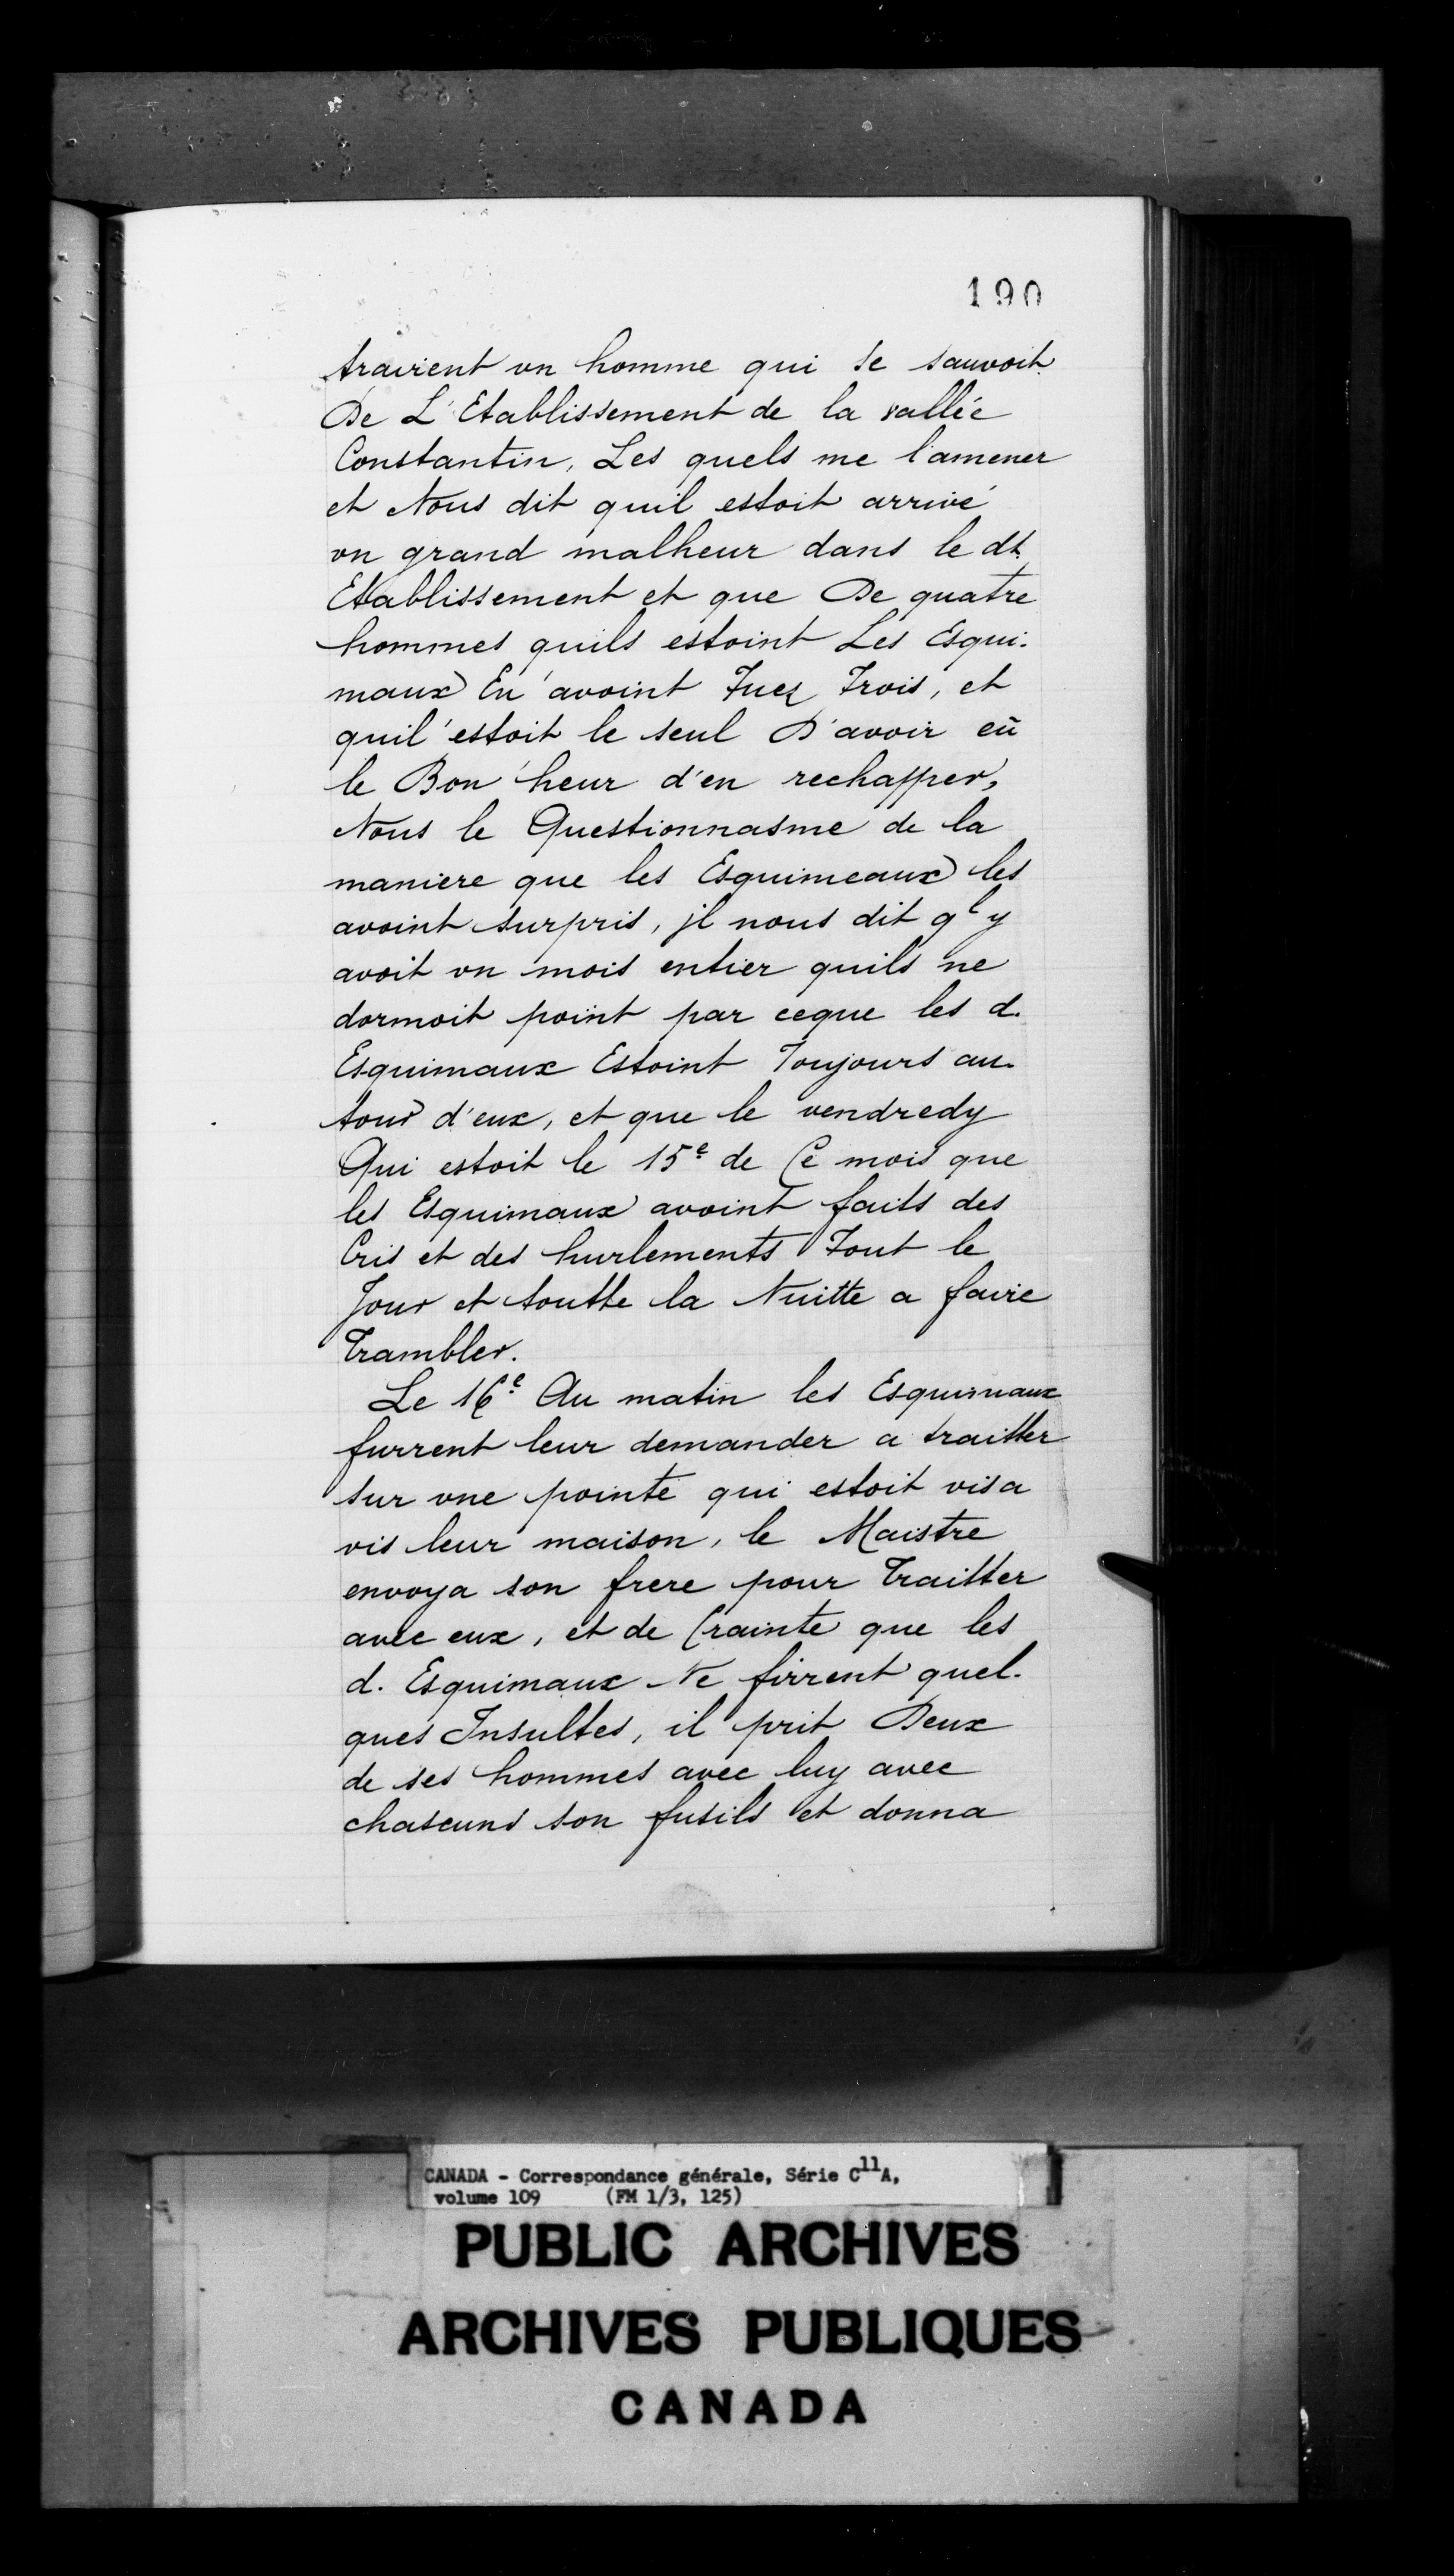 190
travient un homme qui se sauvoit
De L'Etablissement de la vallée
Constantin, Les quels me l'amener
et Nous dit quil estoit arrivé
un grand malheur dans le dt.
Etablissement et que De quatre
hommes quils estoint Les Esqui-
maux En avoint Tuez Trois, et
quil estoit le seul D'avoir eü
le Bon heur d'en rechapper,
Nous le Questionnasme de la
maniere que les Esquimeaux les
avoint surpris, jl nous dit ql y
avoit un mois entier quils ne
dormoit point par ceque les d.
Esquimaux Estoint Toujours au-
tour d'eux, et que le vendredy
Qui estoit le 15e de Ce mois que
les Esquimaux avoint faits des
Cris et des hurlements Tout le
Jour et toutte la Nuitte a faire
Trambler.
Le 16e Au matin les Esquimaux
furrent leur demander a traitter
sur une pointe qui estoit vis a
vis leur maison, le Maistre
envoya son frere pour Traitter
avec eux, et de Crainte que les
d. Esquimaux Ne firrent quel-
ques Insultes, il prit Deux
de ses hommes avec luy avec
chascuns son fusils et donna
CANADA - Correspondance générale, Série C11A,
volume 109 (FM 1/3, 125)
PUBLIC ARCHIVES
ARCHIVES PUBLIQUES
CANADA